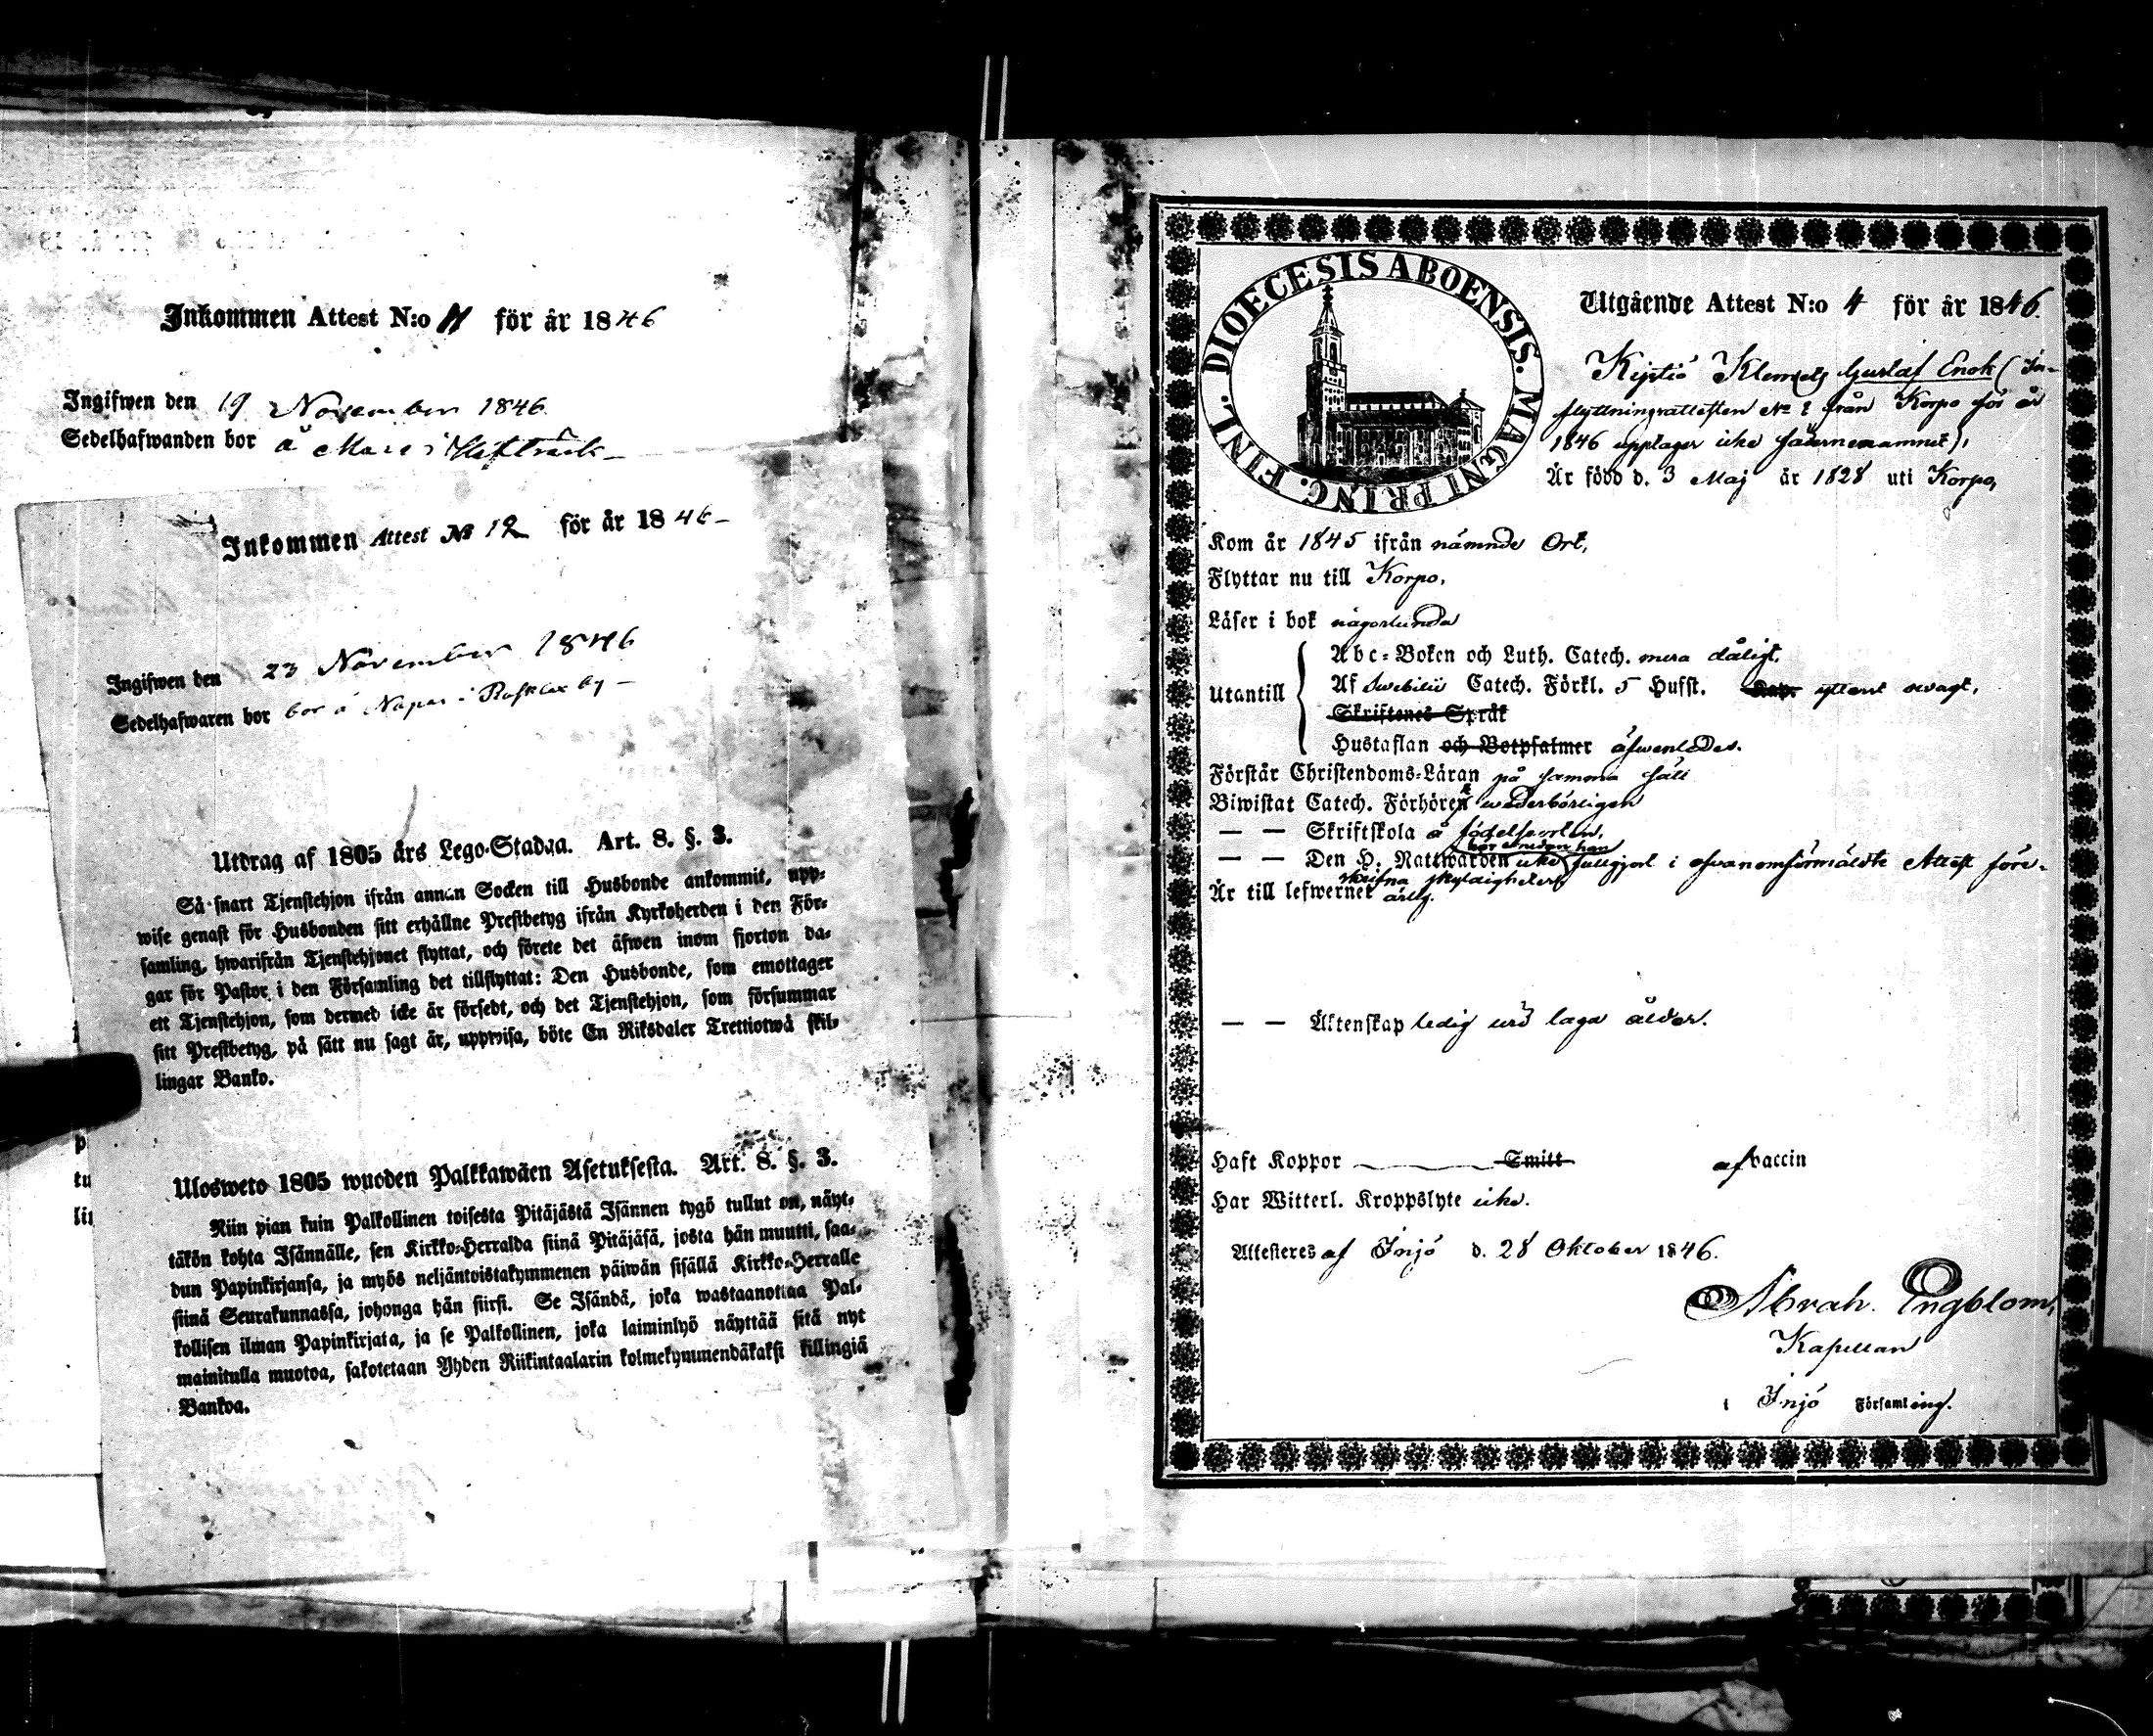 Inkommen Attest N:o 11 för år 1846
Ingifwen den 19 November 1846
Sedelhafwanden bor å Mars i
Inkommen Attest № 12 för år 1846
Ingifwen den 23 November 1846
Sedelhafwaren bor bor å Napar i by
Utdrag af 1805 års Lego-Stadga. Art. 8. §. 3.
Så snart Tjenstehjon ifrån annan Socken till Husbonde ankommit, upp-
wise genast för Husbonden sitt erhållne Prestbetyg ifrån Kyrkoherden i den För-
samling, hwarifrån Tjenstehjonet flyttat, och förete det äfwen inom fjorton da-
gar för Pastor i den Församling det tillflyttat: Den Husbonde, som emottager
ett Tjenstehjon, som dermed icke är försedt, och det Tjenstehjon, som försummar
sitt Prestbetyg, på sätt nu sagt är, uppwisa, böte En Riksdaler Trettiotwå skil-
lingar Banko.
Ulosweto 1805 wuoden Palkkawäen Asetuksesta. Art. 8. §. 3.
Niin pian kuin Palkollinen toisesta Pitäjästä Isännen tygö tullut on, näyt-
täkön kohta Isännälle, sen Kirkko-Herralda siinä Pitäjäsä, josta hän muutti, saa-
dun Papinkirjansa, ja myös neljäntoistakymmenen päiwän sisällä Kirkko-Herralle
siinä Seurakunnassa, johonga hän siirsi. Se Isändä, joka wastaanottaa Pal-
kollisen ilman Papinkirjata, ja se Palkollinen, joka laiminlyö näyttää sitä nyt
mainitulla muotoa, sakotetaan Yhden Riikintaalarin kolmekymmendäkaksi killingiä
Bankoa.
DIOECESIS ABOENSIS. MAGNI PRINC. FINL.
Utgående Attest N:o 4 för år 1846.
Klemets Gustaf Enok (In-
flyttningsattesten № 2 från Korpo för år
1846 upptager icke fädernenamnet),
Är född d. 3 Maj år 1828 uti Korpo,
Kom år 1845 ifrån nämnde Ort,
Flyttar nu till Korpo,
Läser i bok någorlunda
Utantill
Abc-Boken och Luth. Catech. mera dåligt,
Af Swebilii Catech. Förkl. 5 Hufst. Kap. ytterst swagt,
Skriftenes Språk
Hustaflan och Botpsalmer äfwenledes.
Förstår Christendoms-Läran på samma sätt
Biwistat Catech. Förhören wederbörligen
— — Skriftskola å födelseorten,
bör emedan han
— — Den H. Nattwarden icke fullgjort i ofwanomförmäldte Attest före-
skrifna skyldigheter,
Är till lefwernet ärlig.
— — Äktenskap ledig wid laga ålder.
Haft Koppor Smitt af vaccin
Har Witterl. Kroppslyte icke.
Attesteres af Iniö d. 28 Oktober 1846.
Abrah. Engblom,
Kapellan
i Iniö Församling.